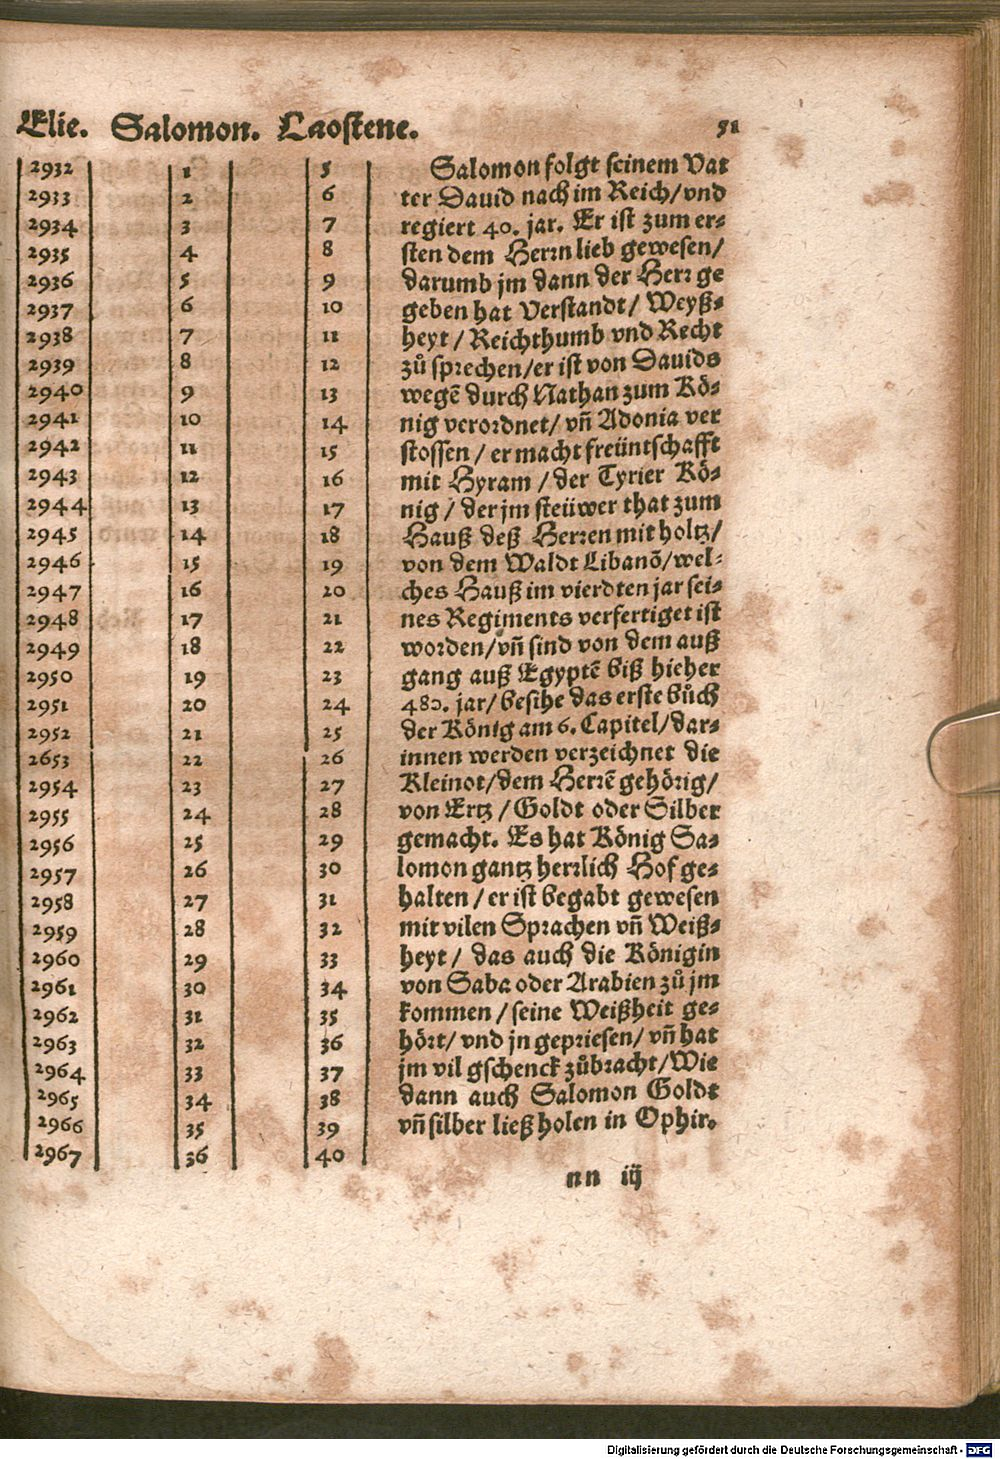 Elie. Salomon. Laostene. 51
2932 1 5 Salomon folgt seinem Vat
2933 2 6 ter Dauid nach im Reich/vnd
2934 3 7 regiert 40. jar. Er ist zum er⸗
2935 4 8 sten dem Herrn lieb gewesen/
2936 5 9 darumb jm dann der Herr ge
2937 6 10 geben hat Verstandt/ Weyß⸗
2938 7 11 heyt/ Reichthumb vnd Recht
2939 8 12 zů sprechen/er ist von Dauids
2940 9 13 wegẽ durch Nathan zum Kö⸗
2941 10 14 nig verordnet/ vñ Adonia ver
2942 11 15 stossen/ er macht freüntschafft
2943 12 16 mit Hyram/ der Tyrier Kö⸗
2944 13 17 nig/ der jm steüwer that zum
2945 14 18 Hauß deß Herren mit holtz/
2946 15 19 von dem Waldt Libanõ/wel⸗
2947 16 20 ches Hauß im vierdten jar sei⸗
2948 17 21 nes Regiments verfertiget ist
2949 18 22 worden/vñ sind von dem auß
2950 19 23 gang auß Egyptẽ biß hieher
2951 20 24 480. jar/ besihe das erste bůch
2952 21 25 der König am 6. Capitel/dar⸗
2653 22 26 innen werden verzeichnet die
2954 23 27 Kleinot/dem Herrẽ gehörig/
2955 24 28 von Ertz/ Goldt oder Silber
2956 25 29 gemacht. Es hat König Sa⸗
2957 26 30 lomon gantz herrlich Hof ge⸗
2958 27 31 halten/ er ist begabt gewesen
2959 28 32 mit vilen Sprachen vñ Weiß⸗
2960 29 33 heyt/ das auch die Königin
2961 30 34 von Saba oder Arabien zů jm
2962 31 35 kommen/ seine Weißheit ge⸗
2963 32 36 hört/ vnd jn gepriesen/ vñ hat
2964 33 37 jm vil gschenck zůbracht/Wie
2965 34 38 dann auch Salomon Goldt
2966 35 39 vñ silber ließ holen in Ophir.
2967 36 40
nn iij
Digitalisierung gefördert durch die Deutsche Forschungsgemeinschaft - DFG